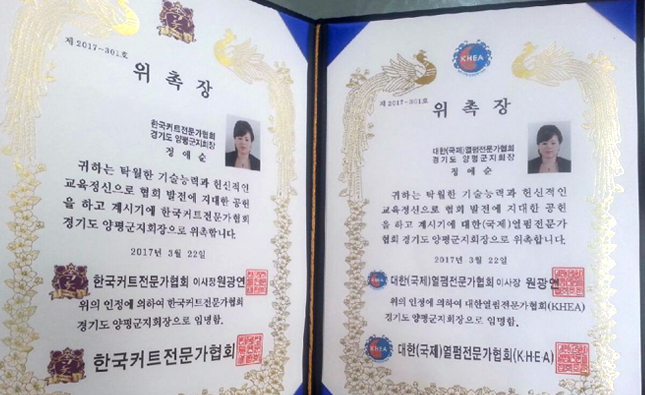 제 2017-301호
위 촉 장
한국커트전문가협회
경기도 양평군지회장
정 예 순
귀하는 탁월한 기술능력과 헌신적인
교육정신으로 협회 발전에 지대한 공헌
을 하고 계시기에 한국커트전문가협회
경기도 양평군지회장으로 위촉합니다.
2017년 3월 22일
한국커트전문가협회 이사장 원광연
위의 인정에 의하여 한국커트전문가협회
경기도 양평군지회장으로 임명함.
한국커트전문가협회
KHEA
제 2017-301호
위 촉 장
대한(국제)열펌전문가협회
경기도 양평군지회장
정 예 순
귀하는 탁월한 기술능력과 헌신적인
교육정신으로 협회 발전에 지대한 공헌
을 하고 계시기에 대한(국제)열펌전문가
협회 경기도 양평군지회장으로 위촉합니다.
2017년 3월 22일
KHEA 대한(국제)열펌전문가협회 이사장 원광연
위의 인정에 의하여 대한열펌전문가협회(KHEA)
경기도 양평군지회장으로 임명함.
KHEA 대한(국제)열펌전문가협회(K·H·E·A)